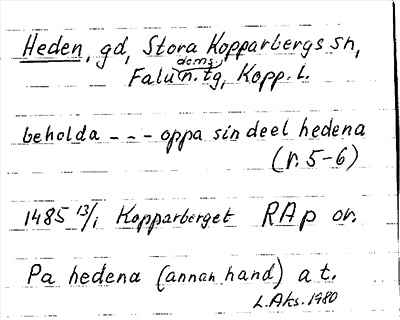 Heden, gd, Stora Kopparbergs sn,
Falu doms. n. tg, Kopp. l.
beholda - - - oppa sin deel hedena
(r. 5-6)
1485 13/1 Kopparberget RAp or.
Pa hedena (annan hand) a t.
L. Aks. 1980